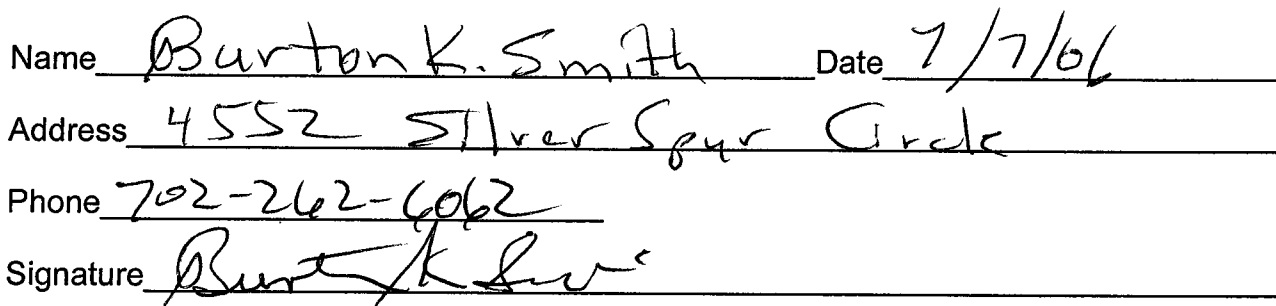 Name Burton K. Smith Date 7/7/06
Address 4552 Silver Spur Circle
Phone 702-262-6062
Signature Burton K Smith